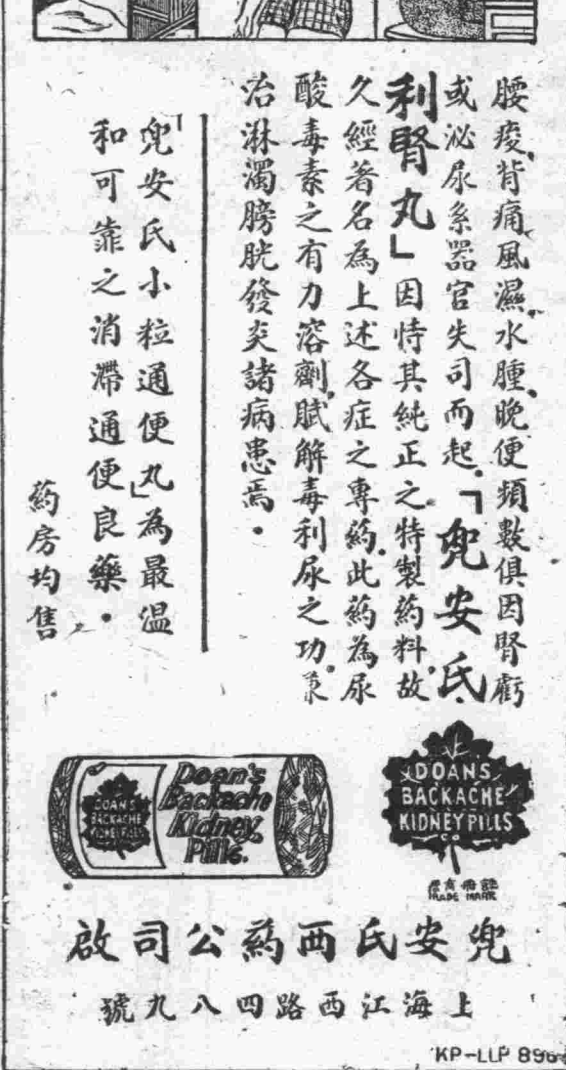 腰痠背痛風濕水腫晚便頻數俱因腎虧
或泌尿系器官失司而起.「兜安氏
利腎丸」因恃其純正之特製藥料.故
久經著名為上述各症之專藥.此藥為尿
酸毒素之有力溶劑.賦解毒利尿之功.兼
治淋濁膀胱發炎諸病患焉.
「兜安氏小粒通便丸」為最溫
和可靠之消滯通便良藥.
藥房均售
DOANS
BACKACHE
KIDNEY PILLS
Doan's
Backache
Kidney
Pills.
DOANS
BACKACHE
KIDNEY PILLS
CO
TRADE MARK
兜安氏西藥公司啟
上海江西路四八九號